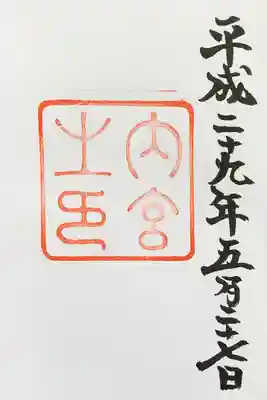 平成二十九年五月二十七日
内宮
之印